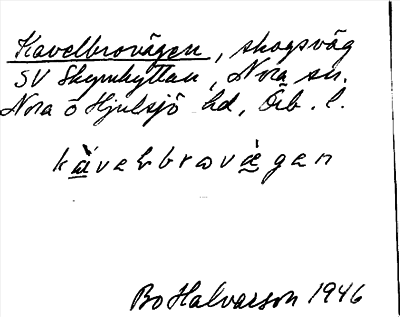 Kavelbrovägen, skogsväg
SV Skymhyttan, Nora sn.
Nora o Hjulsjö hd, Örb. l.
kavelbrovägen
Bo Halvarson 1946